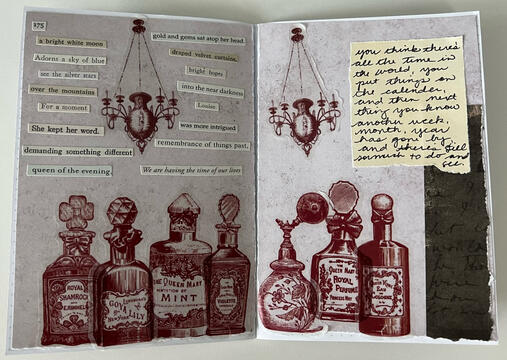 375
a bright white moon
Adorns a sky of blue
see the silver stars
over the mountains
For a moment
She kept her word.
demanding something different
queen of the evening.
gold and gems sat atop her head.
draped velvet curtains,
bright hopes
into the near darkness
Louise
was more intrigued
remembrance of things past.
We are having the time of our lives
ROYAL
SHAMROCK
GOYA LILY
NEW YORK
THE QUEEN MARY
MINT
VIOLETTE
you think there's
all the time in
the world, you
put things on
the calender,
and then next
thing you know
another week,
month, year
has gone by,
and there's still
so much to do and
THE QUEEN MARY
ROYAL
PERFUME
PRINCESS MARY
COLOGNE